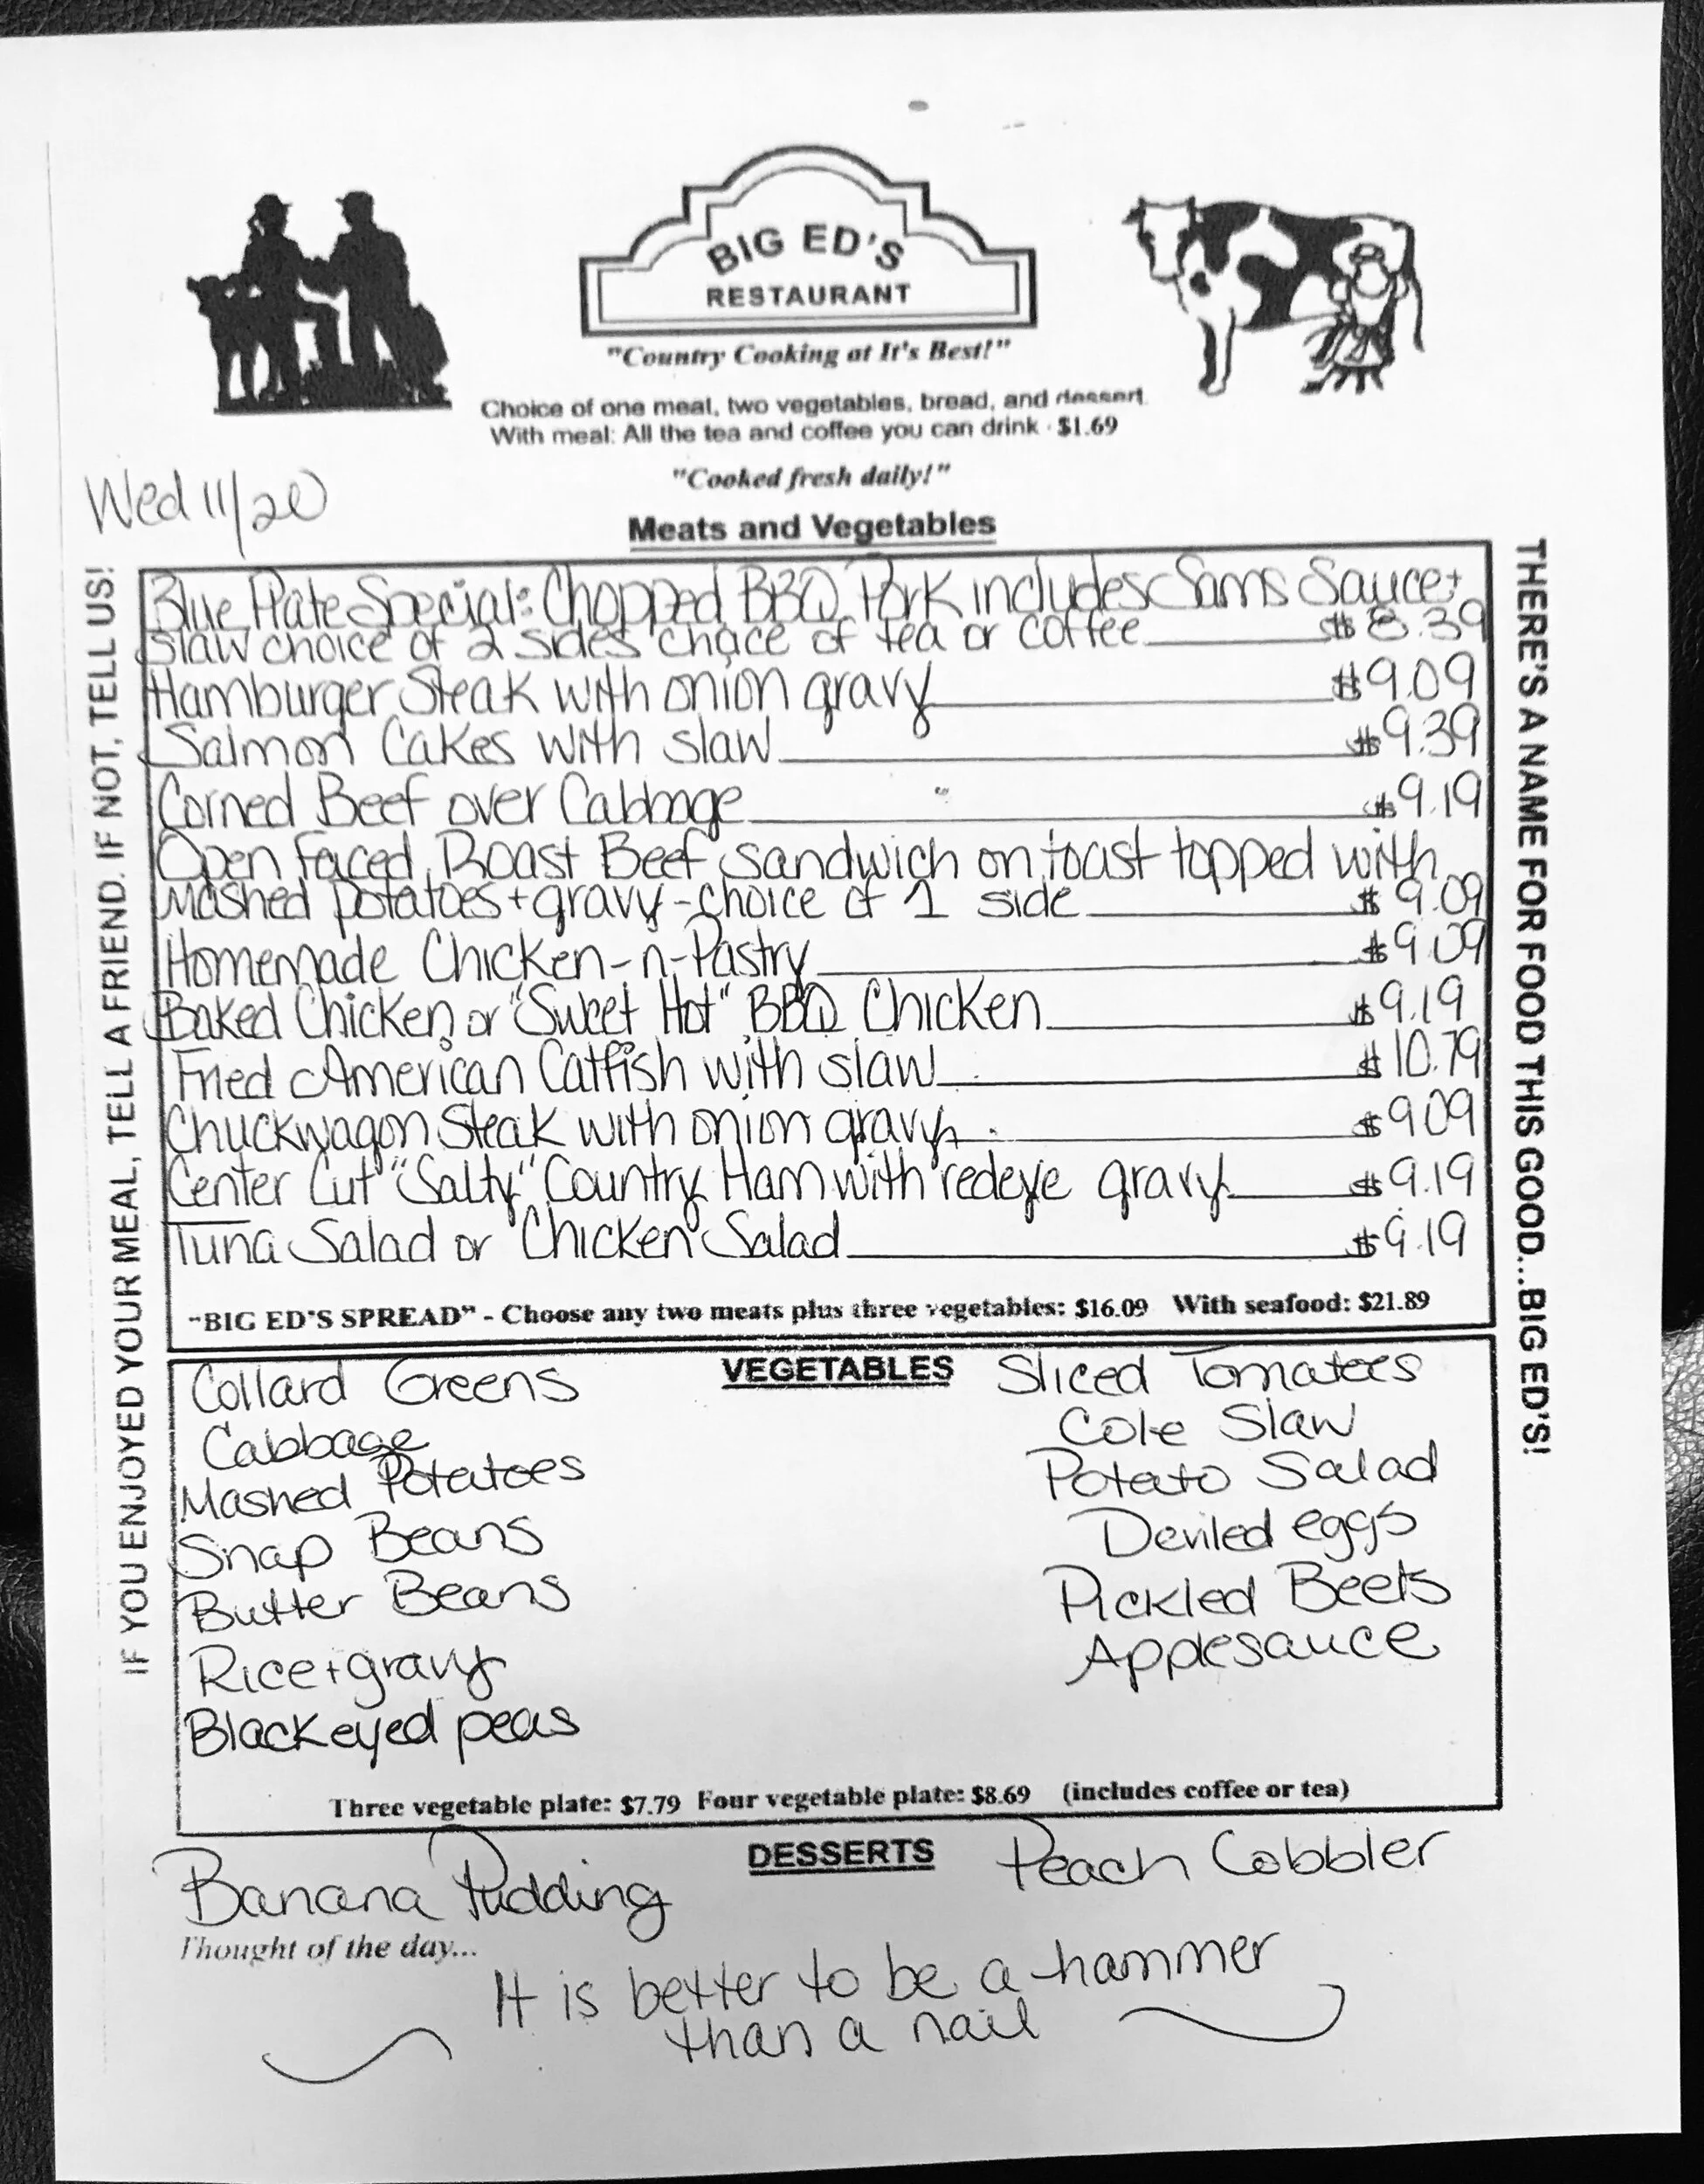 BIG ED'S
RESTAURANT
"Country Cooking at It's Best!"
Choice of one meal, two vegetables, bread, and dessert.
With meal: All the tea and coffee you can drink - $1.69
"Cooked fresh daily!"
Wed 11/20
Meats and Vegetables
Blue Plate Special: Chopped BBQ Pork includes Sams Sauce +
slaw choice of 2 sides choice of tea or coffee $8.39
Hamburger Steak with onion gravy $9.09
Salmon Cakes with slaw $9.39
Corned Beef over Cabbage $9.19
Open Faced Roast Beef Sandwich on toast topped with
mashed potatoes + gravy - choice of 1 side $9.09
Homemade Chicken-n-Pastry $9.09
Baked Chicken or "Sweet Hot" BBQ Chicken $9.19
Fried American Catfish with slaw $10.79
Chuckwagon Steak with onion gravy $9.09
Center Cut "Salty" Country Ham with redeye gravy $9.19
Tuna Salad or Chicken Salad $9.19
"BIG ED'S SPREAD" - Choose any two meats plus three vegetables: $16.09 With seafood: $21.89
VEGETABLES
Collard Greens
Cabbage
Mashed Potatoes
Snap Beans
Butter Beans
Rice + gravy
Blackeyed peas
Sliced Tomatoes
Cole Slaw
Potato Salad
Deviled eggs
Pickled Beets
Applesauce
Three vegetable plate: $7.79 Four vegetable plate: $8.69 (includes coffee or tea)
DESSERTS
Banana Pudding
Peach Cobbler
Thought of the day...
It is better to be a hammer
than a nail
IF YOU ENJOYED YOUR MEAL, TELL A FRIEND. IF NOT, TELL US!
THERE'S A NAME FOR FOOD THIS GOOD...BIG ED'S!